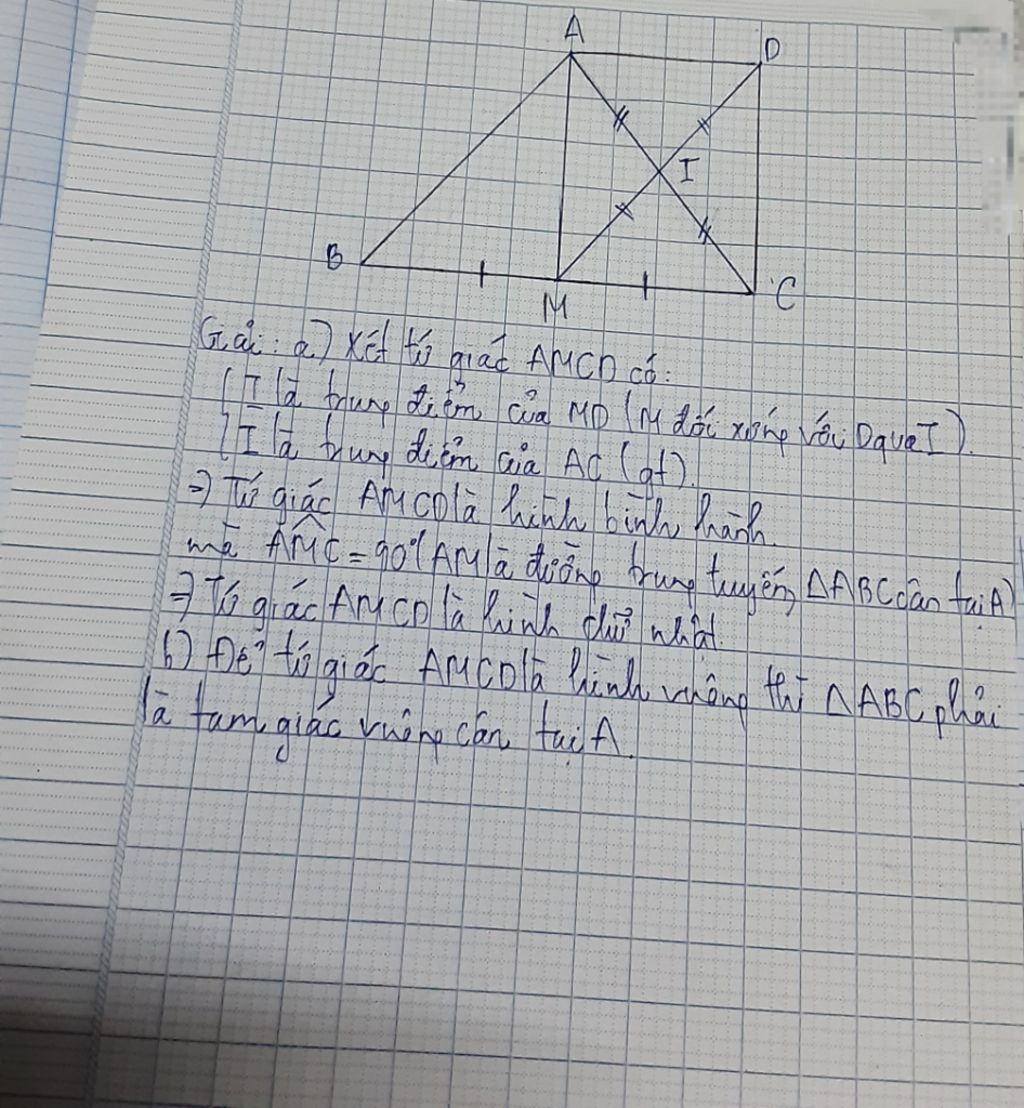 A
D
I
B
M
C
Giải: a) Xét tứ giác AMCD có:
{ I là trung điểm của MD (M đối xứng với D qua I).
I là trung điểm của AC (gt).
=> Tứ giác AMCD là hình bình hành.
mà AMC = 90° (AM là đường trung tuyến, △ABC cân tại A)
=> Tứ giác AMCD là hình chữ nhật.
b) Để tứ giác AMCD là hình vuông thì △ABC phải
là tam giác vuông cân tại A.